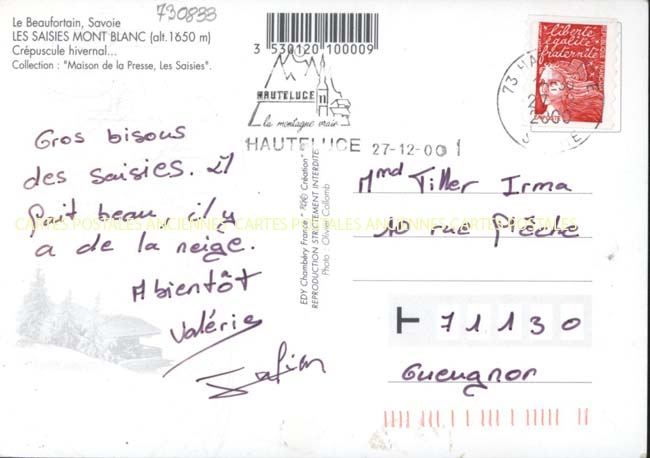 730833
Le Beaufortain, Savoie
LES SAISIES MONT BLANC (alt. 1650 m)
Crépuscule hivernal...
Collection : "Maison de la Presse, Les Saisies".
3 530120 100009
HAUTELUCE
la montagne vraie
HAUTELUCE 27-12-00
liberté
égalité
fraternité
73 HAUTELUCE
2000
Gros bisous
des Saisies. Il
fait beau, il y
a de la neige.
A bientôt
Valérie
EDY Chambéry France "Création"
REPRODUCTION STRICTEMENT INTERDITE
Photo : Olivier Collomb
CARTES POSTALES ANCIENNES CARTES POSTALES ANCIENNES CARTES POSTALES
Mmd Tiller Irma
10 rue Pêche
71130
Gueugnon